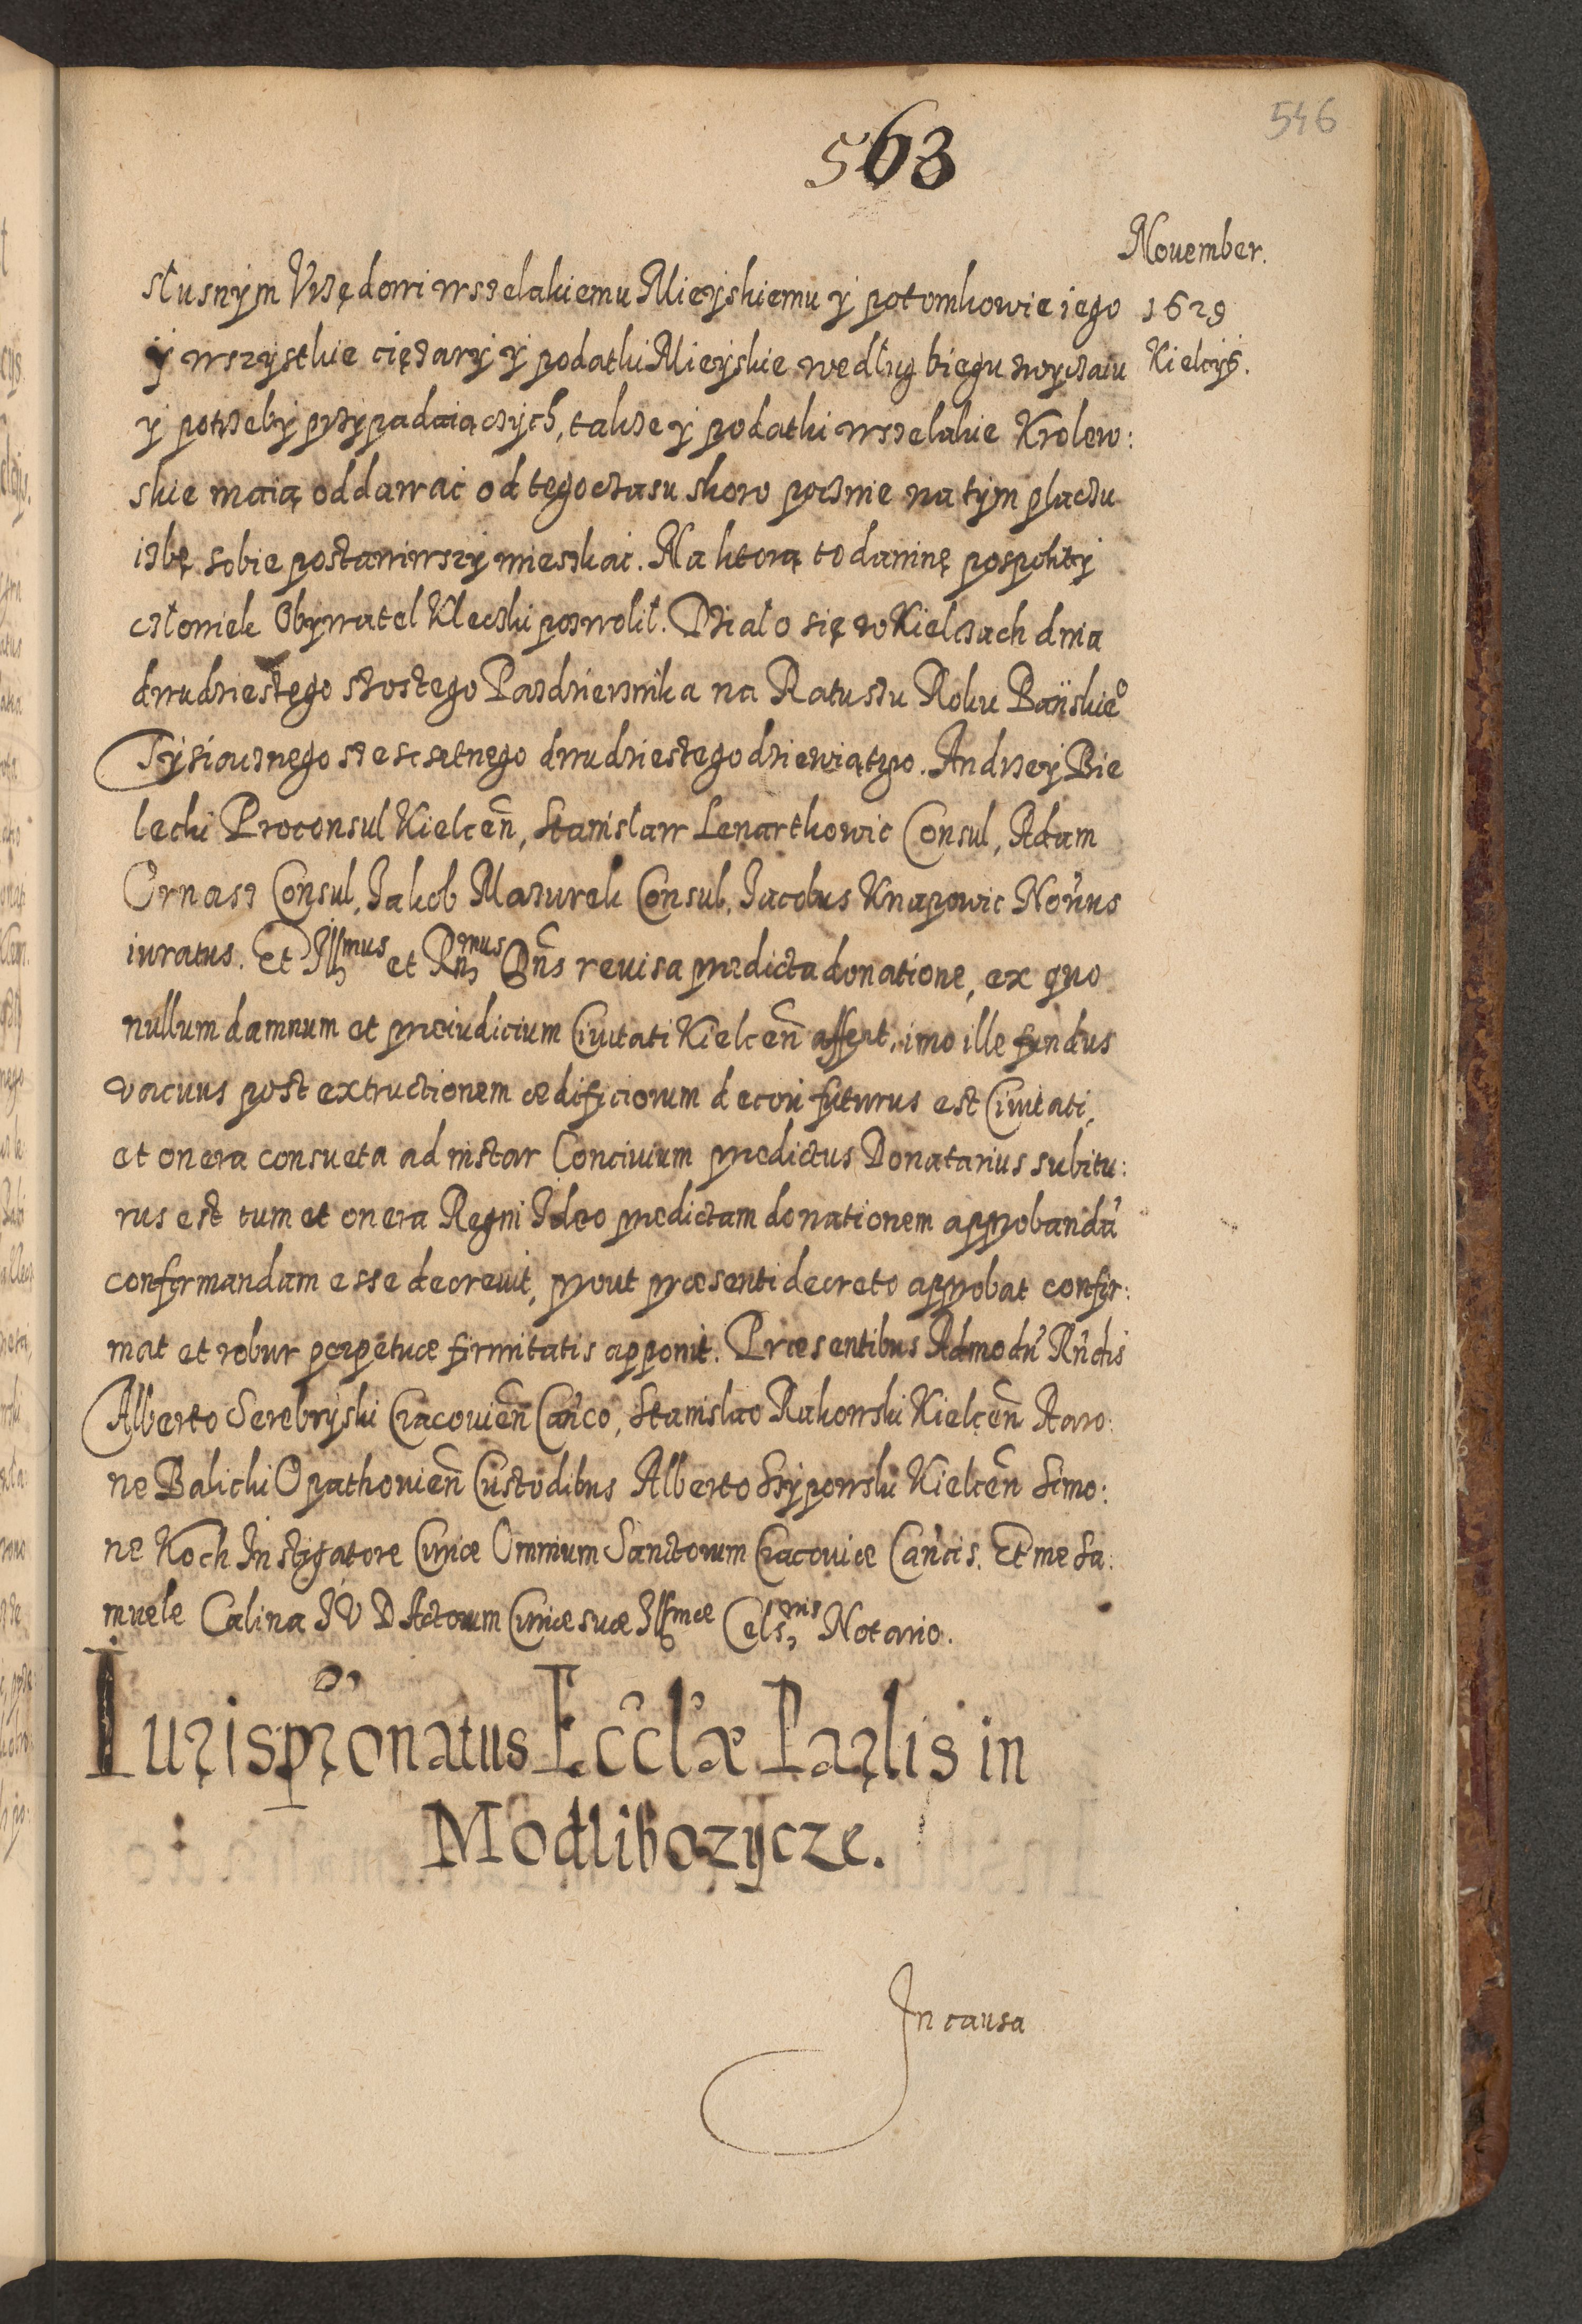 546
563
November.
1629
Kielcijs.
słusnym Vrzędowi wszelakiemu Mieyskiemu y potomkowie iego
y wszystkie ciężary y podatki Mieyskie według biegu zwyczaiu
y potrzeby przypadaiączych, takze y podatki wszelakie Krolew:
skie maią oddawać od tego czasu skoro pocznie na tym placzu
izbę sobie postawiwszy mieszkać. Na ktorą to daninę pospolity
człowiek Obywatel Kleczki pozwolił. Działo się w Kielczach dnia
dwudziestego szostego Pazdziernika na Ratuszu Roku Pańskie⁰
Tysiącznego szescsetnego dwudziestego dziewiątego. Andrzey Bie
lecki Proconsul Kielceñ, Stanisław Lenarthowic Consul, Adam
Ornass Consul, Jakob Mazurek Consul, Jacobus Knapowic Nouus
iuratus. Et Illmus et Rñmus Dñs reuisa prædicta donatione, ex quo
nullum damnum et præiudicium Ciuitati Kielceñ affert, imo ille fundus
vacuus post extructionem ædificiorum decori futurus est Ciuitati,
et onera consueta ad instar Conciuium prædictus Donatarius subitu:
rus est tum et onera Regni Ideo prædictam donationem approbandã
confirmandam esse decreuit, prout præsenti decreto approbat confir:
mat et robur perpetuæ firmitatis apponit. Præsentibus Admodũ Rñdis
Alberto Serebryski Cracouieñ Cañco, Stanislao Rakowski Kielceñ Aaro:
ne Balicki Opathouieñ Custodibus Alberto Ssypowski Kielceñ Simo:
ne Koch Instigatore Curiæ Omnium Sanctorum Cracouiæ Cañcis. Et me Sa:
muele Calina I V D Actorum Curiæ suæ Illmæ Cels,nis Notario.
Iurispr̃onatus Ecclæ Parlis in
Modlibozycze.
In causa